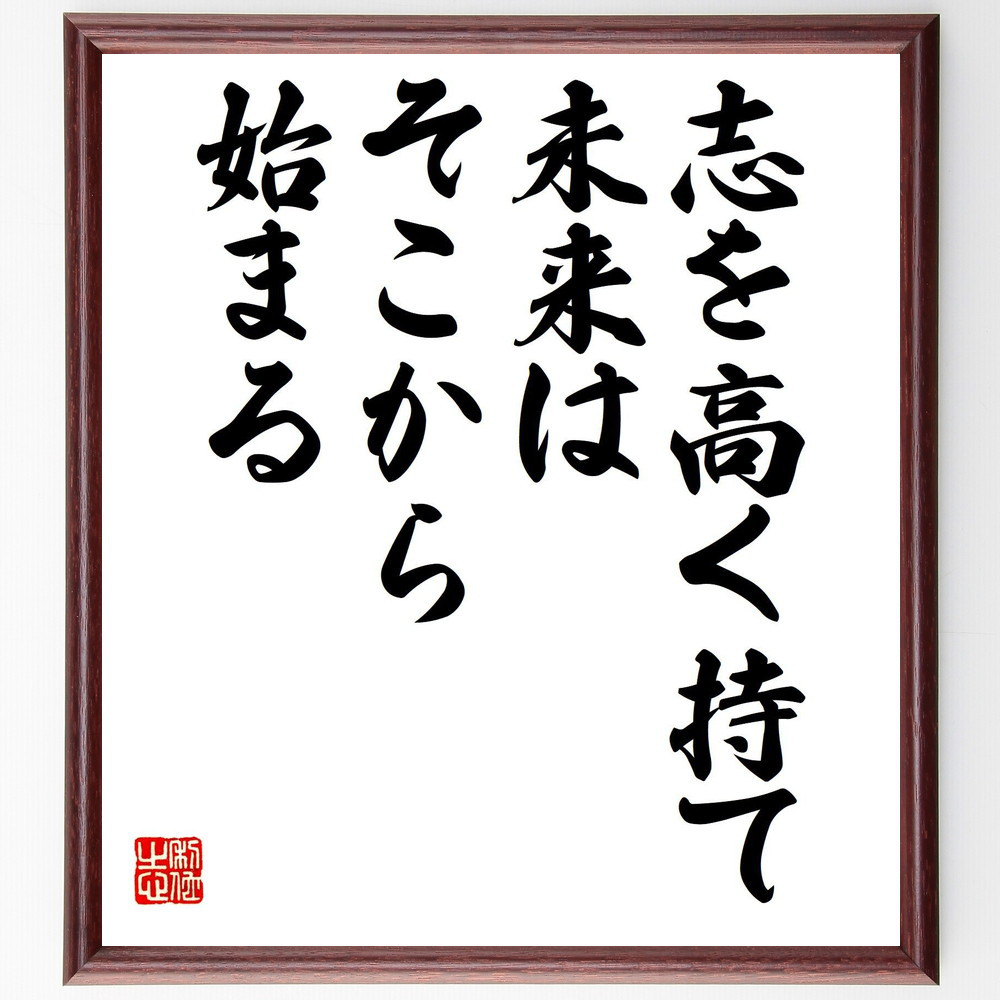 志を高く持て
未来は
そこから
始まる